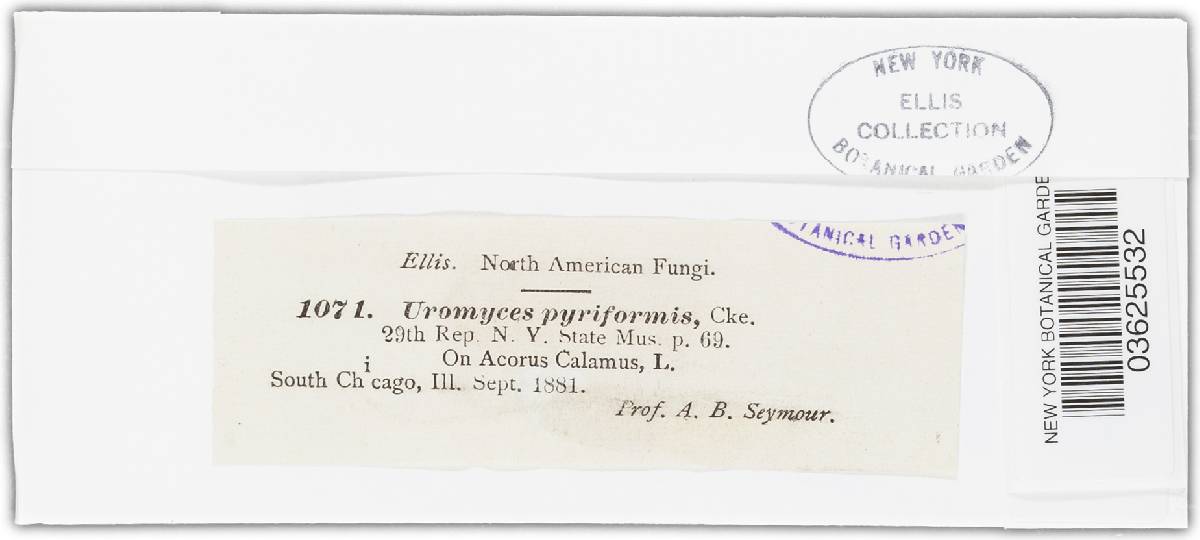 NEW YORK
ELLIS
COLLECTION
BOTANICAL GARDEN
TANICAL GARDEN
Ellis. North American Fungi.
1071. Uromyces pyriformis, Cke.
29th Rep. N. Y. State Mus. p. 69.
On Acorus Calamus, L.
South Chicago, Ill. Sept. 1881.
Prof. A. B. Seymour.
NEW YORK BOTANICAL GARDE
03625532